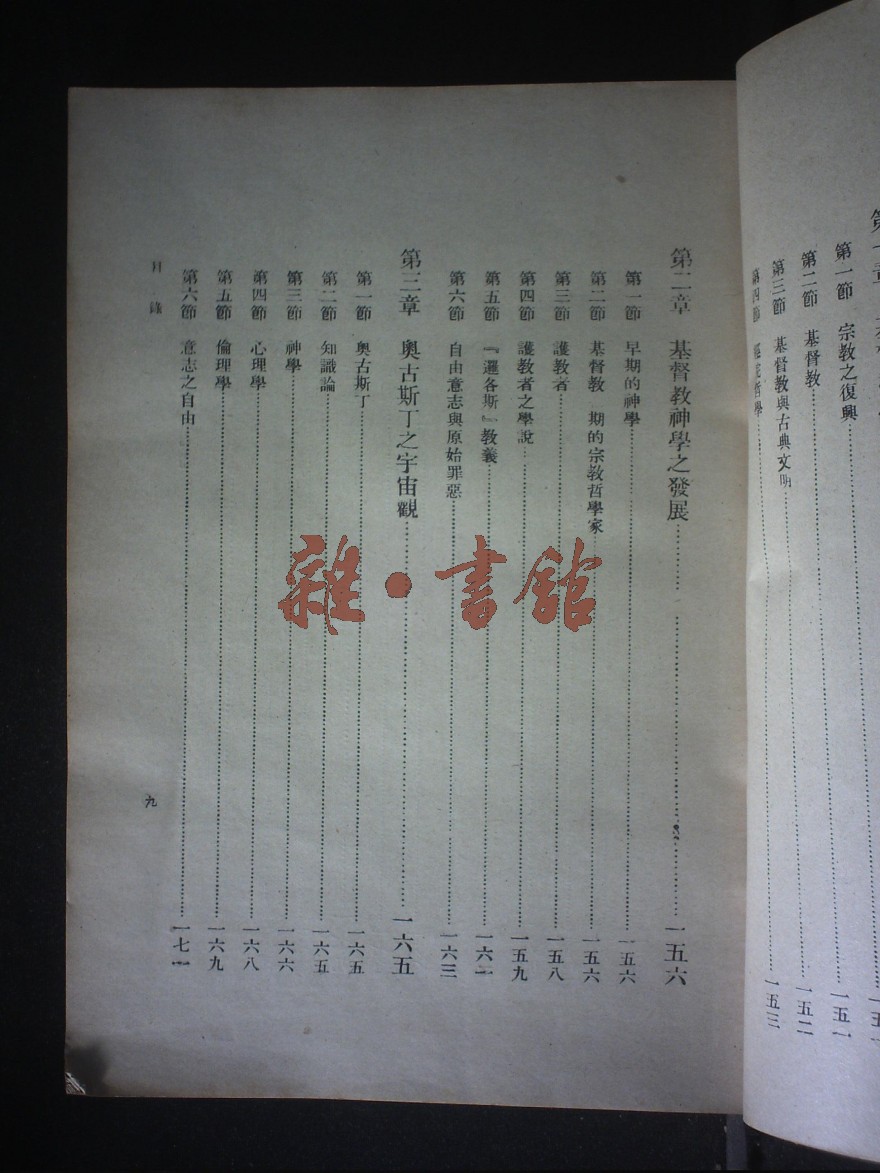 第一節 宗教之復興 一五一
第二節 基督教 一五二
第三節 基督教與古典文明 一五三
第四節 哲學
第二章 基督教神學之發展 一五六
第一節 早期的神學 一五六
第二節 基督教 期的宗教哲學家 一五六
第三節 護教者 一五八
第四節 護教者之學說 一五九
第五節 『邏各斯』教義 一六一
第六節 自由意志與原始罪惡 一六三
第三章 奧古斯丁之宇宙觀 一六五
第一節 奧古斯丁 一六五
第二節 知識論 一六五
第三節 神學 一六六
第四節 心理學 一六八
第五節 倫理學 一六九
第六節 意志之自由 一七一
目錄
九
雜·書館